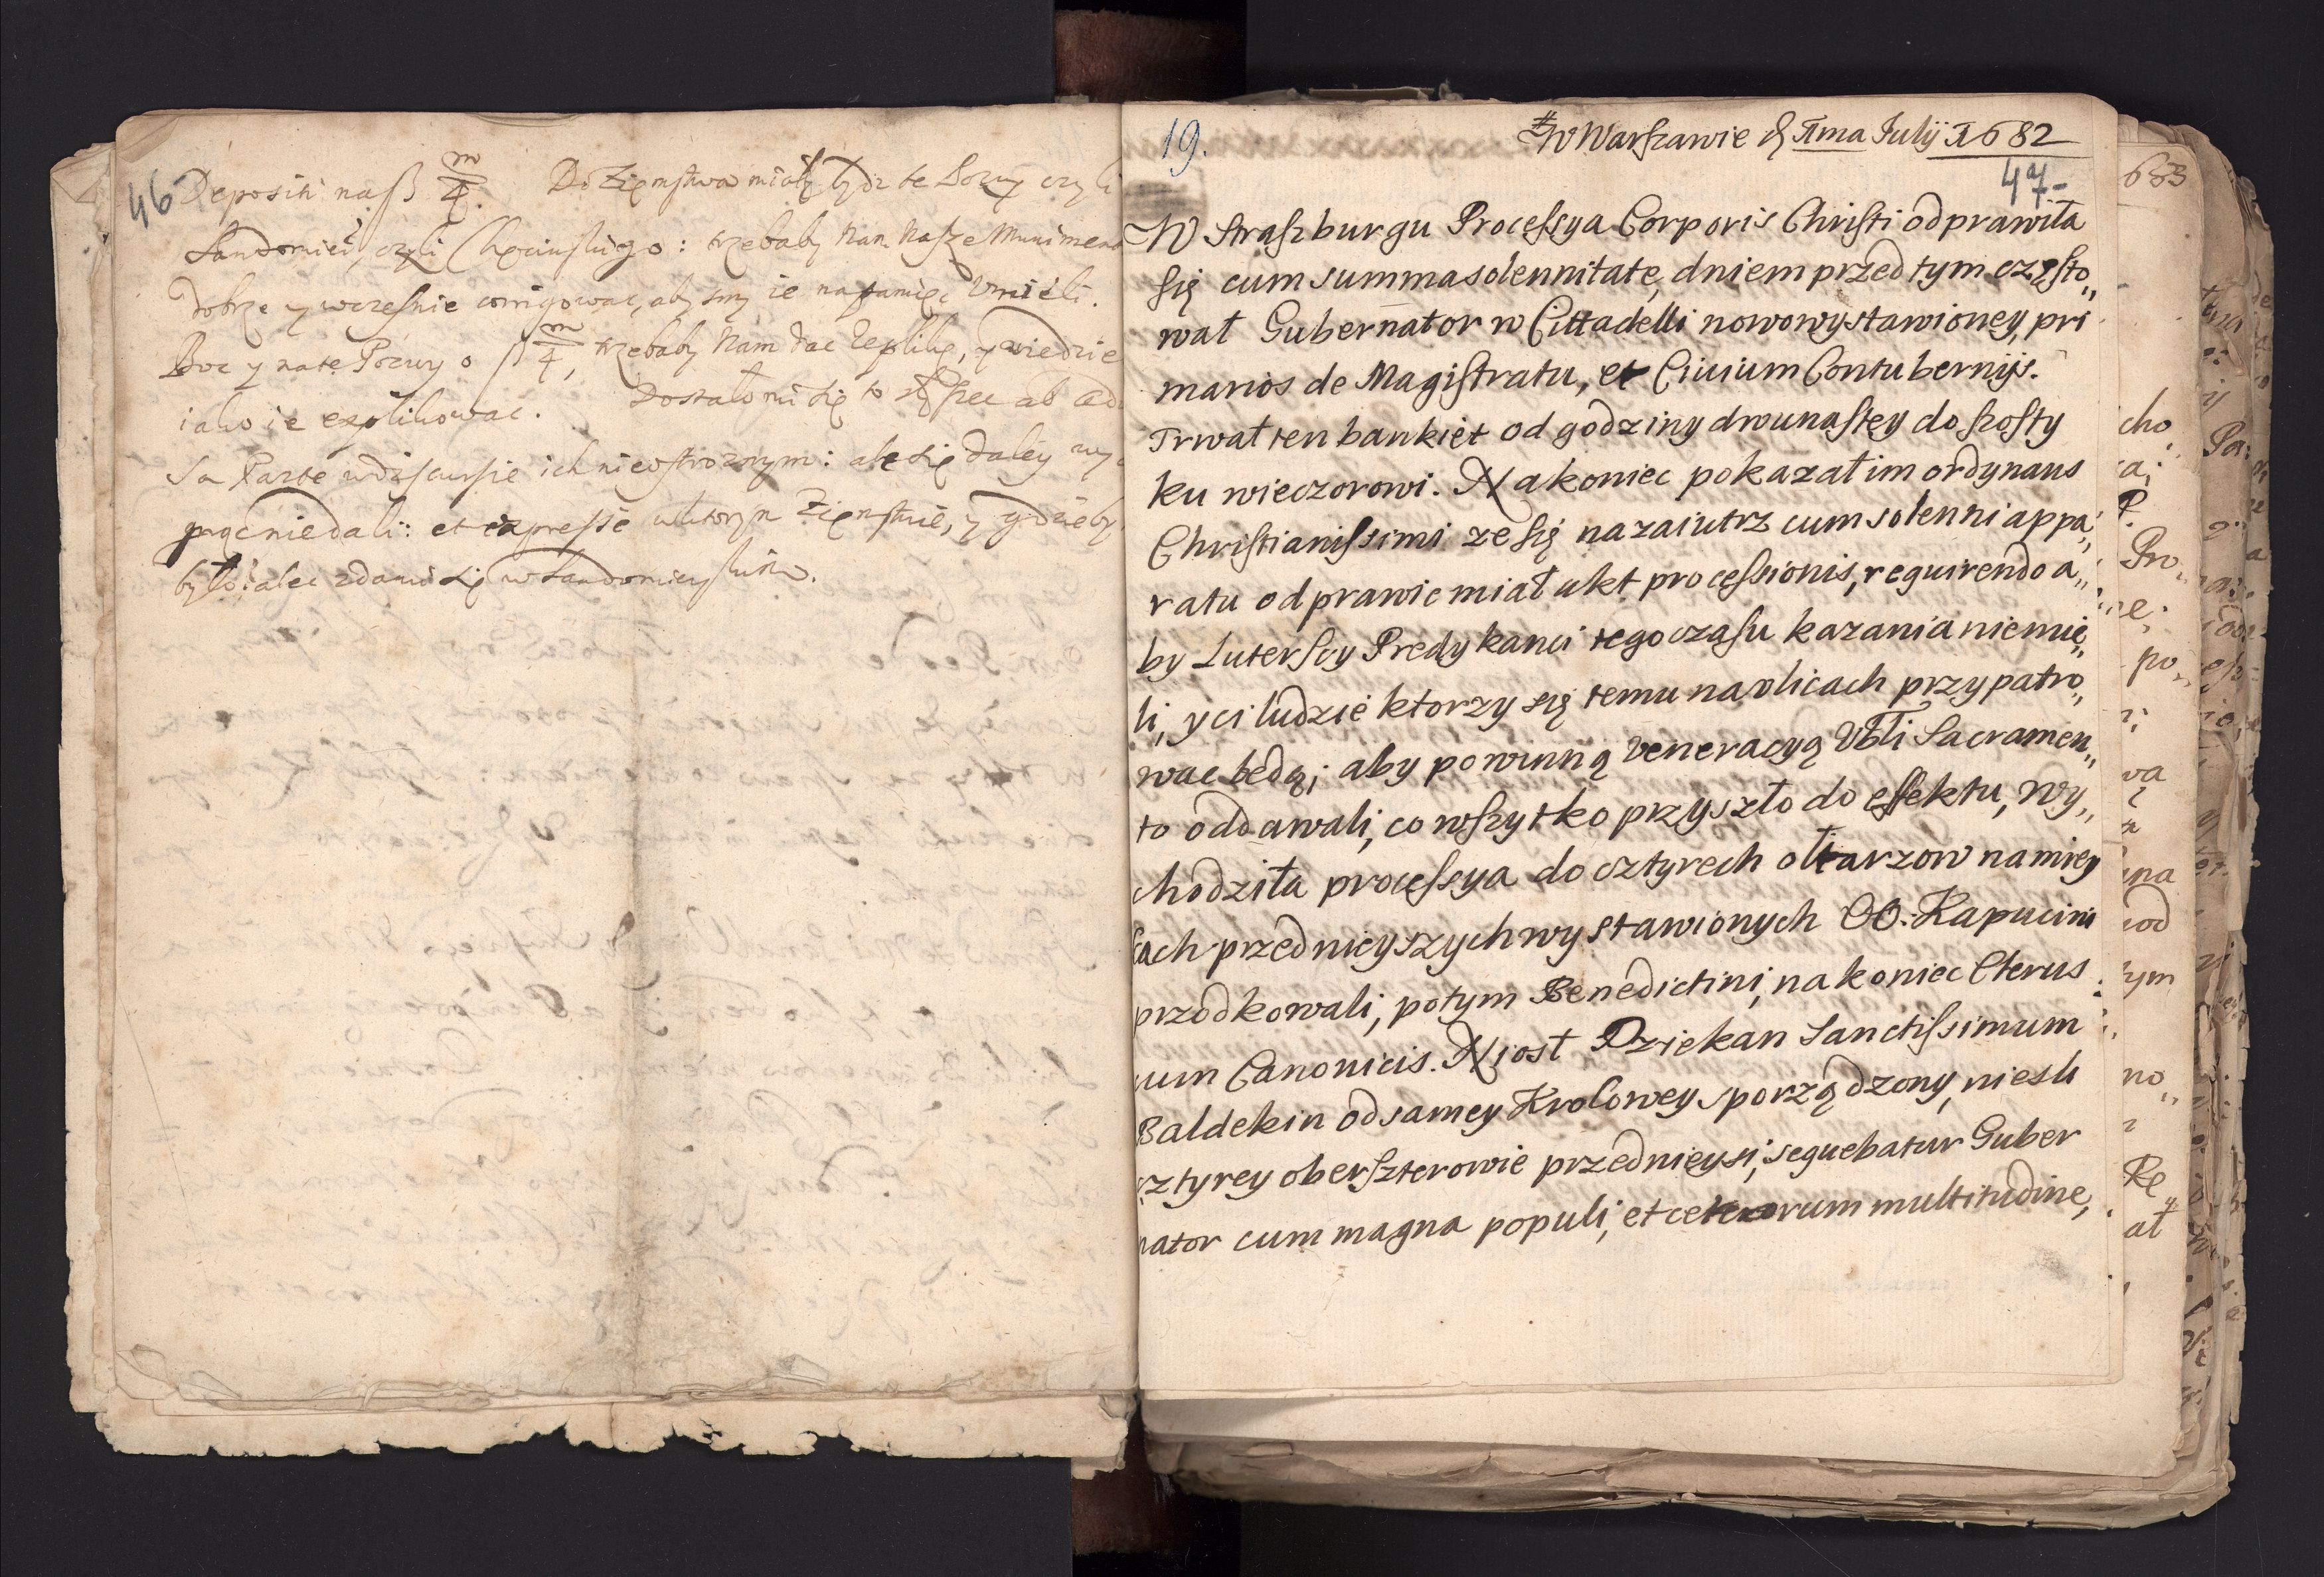 46
Depositi naß m/4. Do Ziemstwa miały bydz te Pozwy czyli
Sandomier, czyli Chęcinskiego: trzebaby Nam Nasze Muniment
dobrze y wczesnie corrigować, aby smy ie napamięć Vmieli.
Boc y na te Pozwy o ß m/4, trzebaby Nam dac Replikę, y wiedzie
iako ie explikowac. Dostało mi się to
Parte w discursie ich nieostroznym: ale się daley
prąc nie dali: et expresse w ktorym Ziemstwie, y gdzieby
było: alec zdami się w Sandomierskim.
19.
W Warszawie d. 11ma Julij 1682
47-
W Straszburgu Processya Corporis Christi odprawiła
się cum summa solennitate, dniem przed tym często„
wał Gubernator w Cittadelli nowowystawioney, pri
marios de Magistratu, et Ciuium Contubernijs.
Trwał ten bankiet od godziny dwunastey do szosty
ku wieczorowi. Nakoniec pokazał im ordynans
Christianissimi ze się nazaiutrz cum solenni appa„
ratu odprawic miał akt processionis, requirendo a„
by Luterscy Predykanci tego czasu kazania niemie„
li, y ci ludzie ktorzy się temu na vlicach przypatro„
wac będą; aby powinną veneracyą Vbli Sacramen„
to oddawali, co wszytko przyszło do effektu, wy„
chodziła processya do cztyrech ołtarzow na miey
scach przednieyszych wystawionych OO. Kapucini
przodkowali, potym Benedictini, nakoniec Clerus
cum Canonicis. Niosł Dziekan Sanctissimum
Baldekin od samey Krolowey sporządzony, niesli
cztyrey oberszterowie przednieysi, sequebatur Guber
nator cum magna populi, et ceterorum multitudine,
683
cho„
ca;
P.
Pro„
ne;
po„
wa
una
cod
tym
no„
Re„
ał